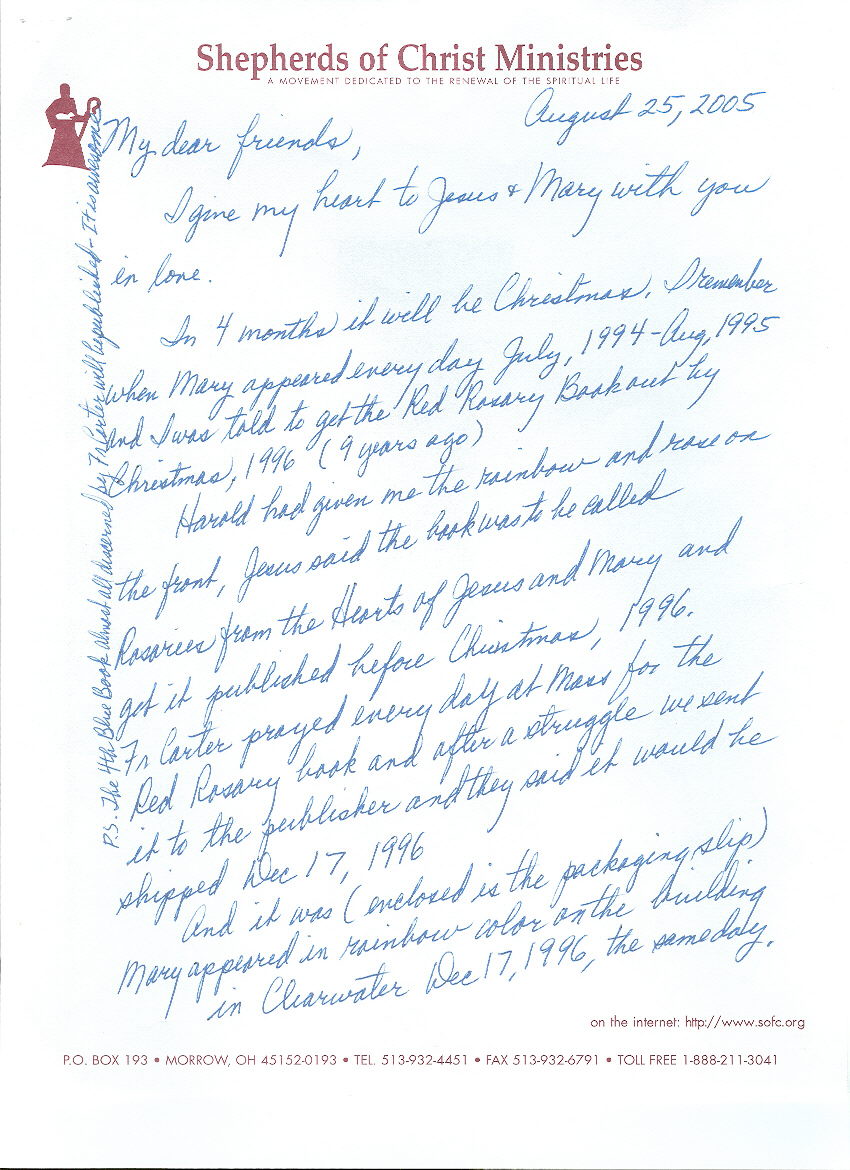 Shepherds of Christ Ministries
A MOVEMENT DEDICATED TO THE RENEWAL OF THE SPIRITUAL LIFE
August 25, 2005
My dear friends,
I give my heart to Jesus & Mary with you
in love.
In 4 months it will be Christmas. I remember
when Mary appeared every day July, 1994-Aug, 1995
and I was told to get the Red Rosary Book out by
Christmas, 1996 (9 years ago)
Harold had given me the rainbow and rose on
the front, Jesus said the book was to be called
Rosaries from the Hearts of Jesus and Mary and
get it published before Christmas, 1996.
Fr Carter prayed every day at Mass for the
Red Rosary book and after a struggle we sent
it to the publisher and they said it would be
shipped Dec 17, 1996
And it was (enclosed is the packaging slip)
Mary appeared in rainbow color on the building
in Clearwater Dec 17, 1996, the same day.
P.S. The 4th Blue Book almost all discerned by Fr Carter will be published - It is awesome
on the internet: http://www.sofc.org
P.O. BOX 193 • MORROW, OH 45152-0193 • TEL. 513-932-4451 • FAX 513-932-6791 • TOLL FREE 1-888-211-3041